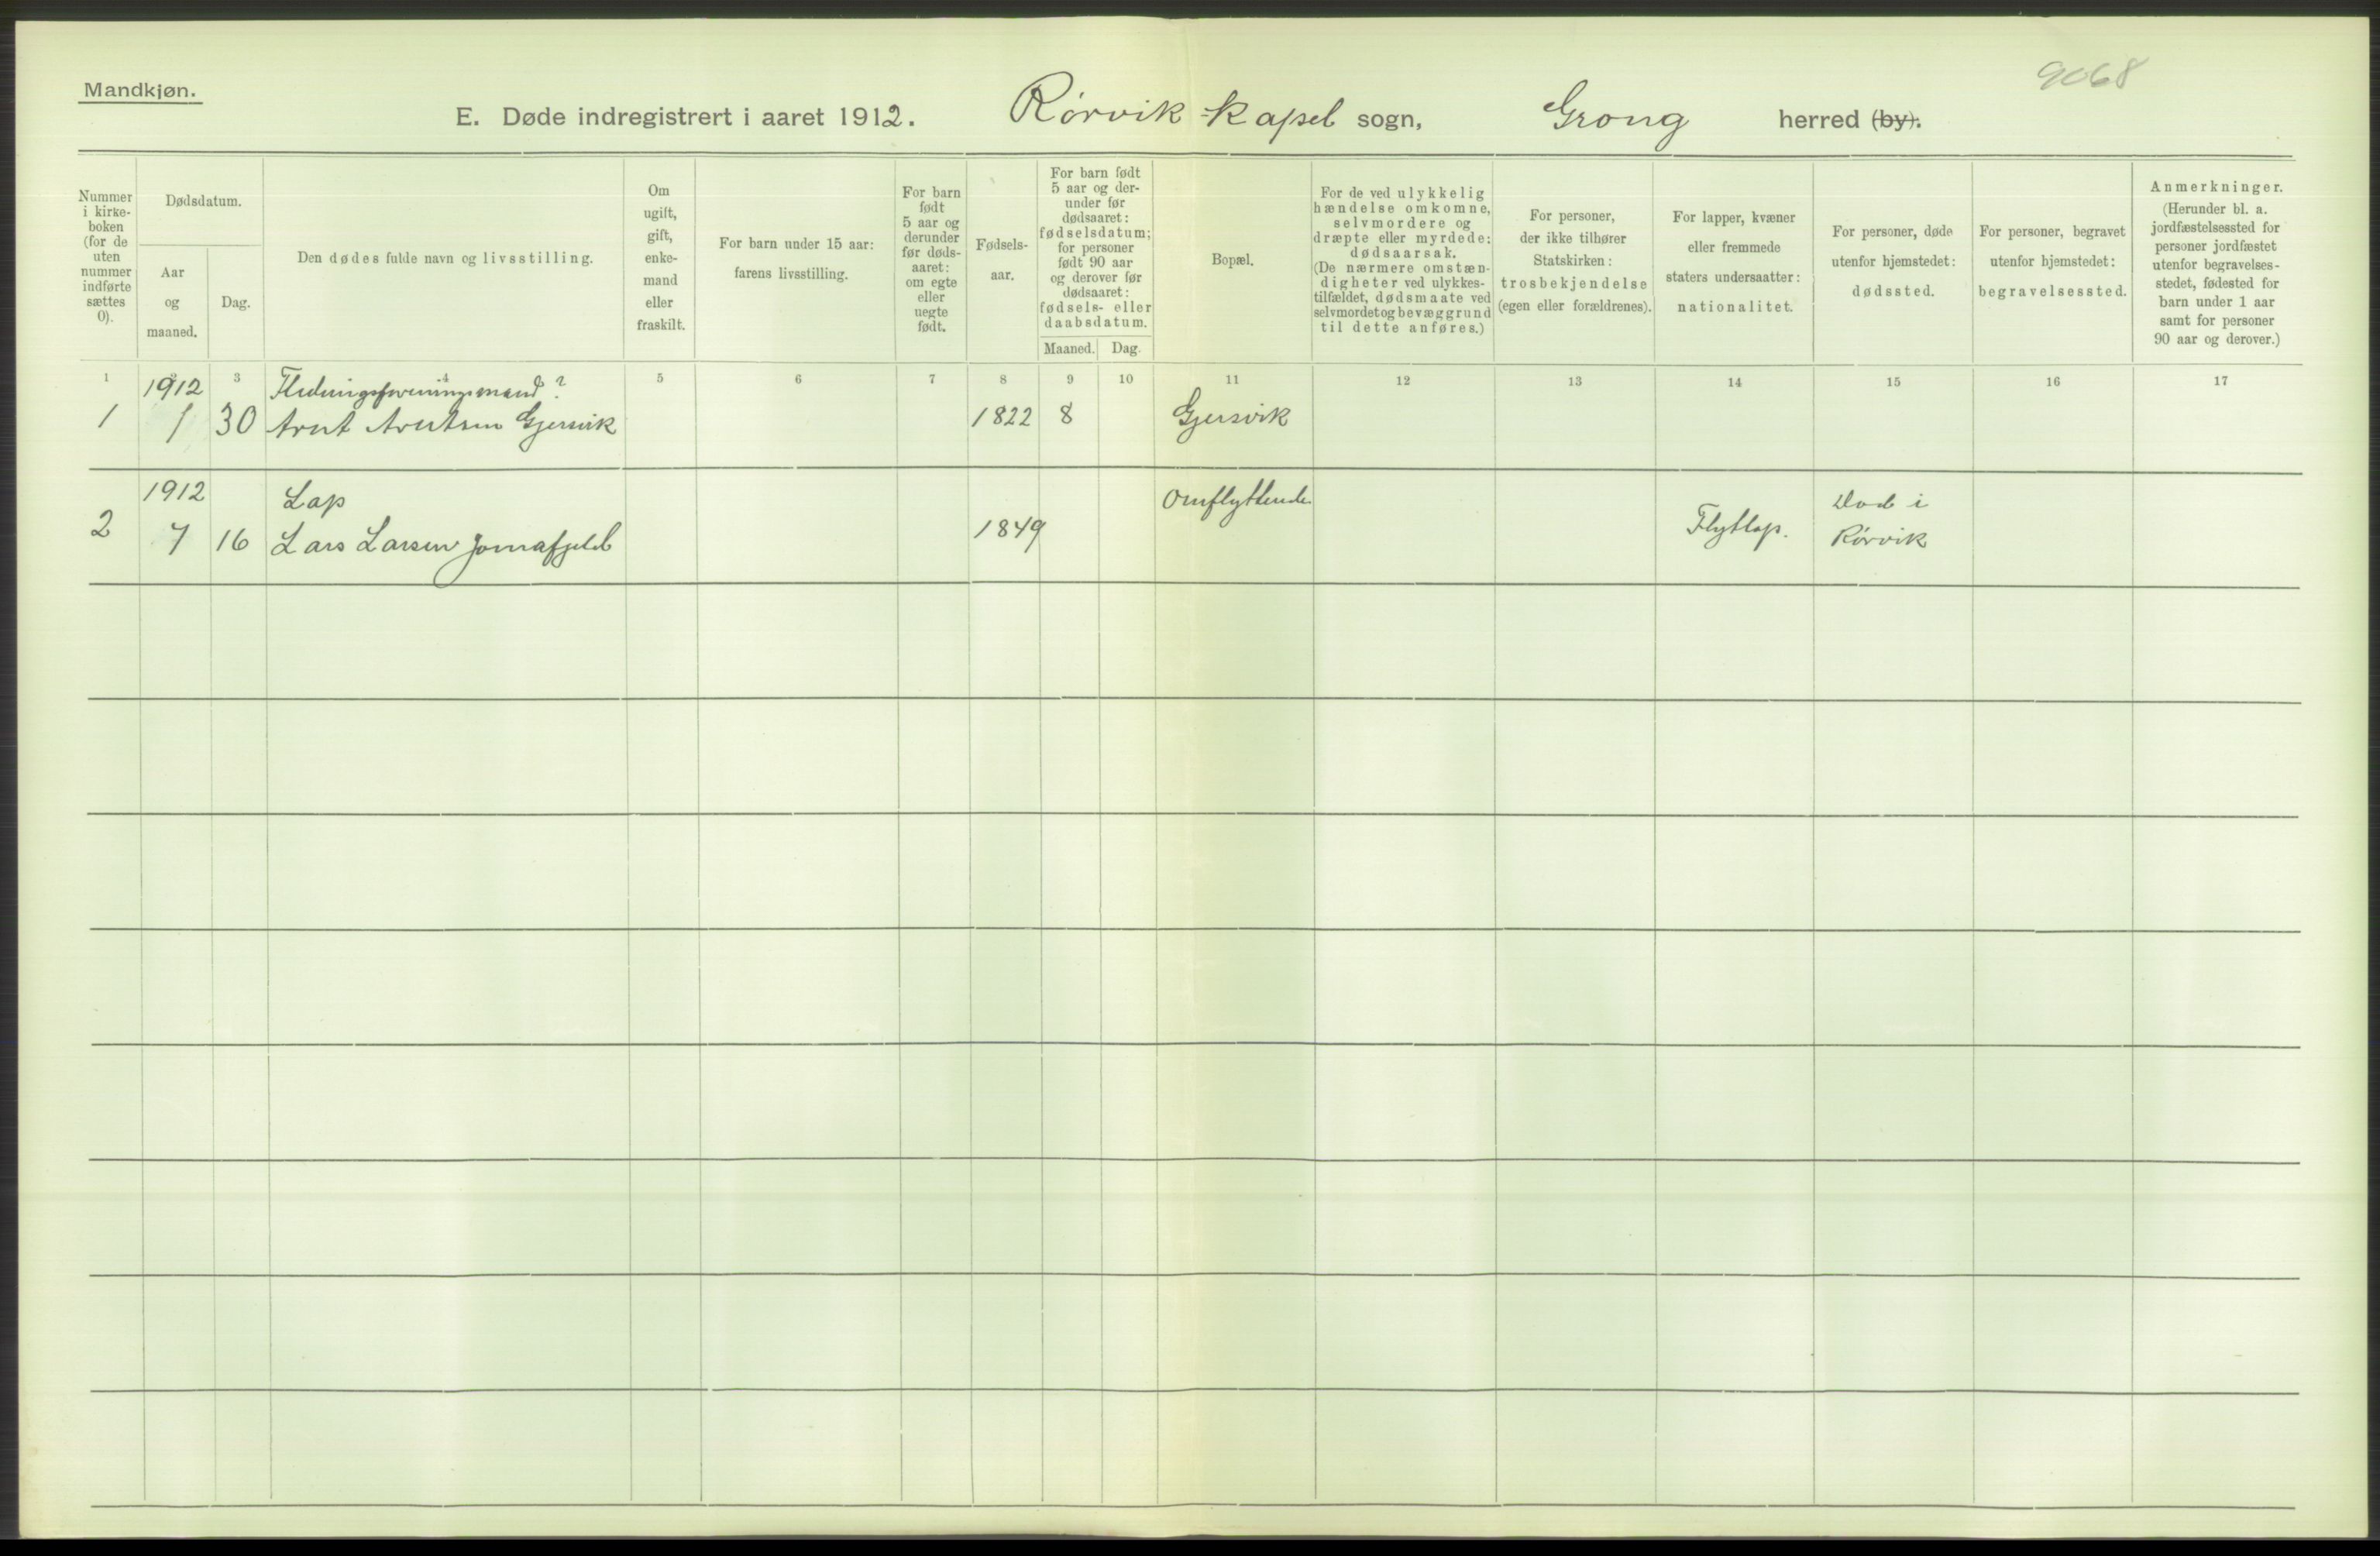 Mandkjøn.
9068
E. Døde indregistrert i aaret 1912. Rørvik-kapel sogn, Grong herred (by).
Nummer
i kirke-
boken
(for de
uten
nummer
indførte
sættes
0).
Dødsdatum.
Aar
og
maaned.
Dag.
Den dødes fulde navn og livsstilling.
Om
ugift,
gift,
enke-
mand
eller
fraskilt.
For barn under 15 aar:
farens livsstilling.
For barn
født
5 aar og
derunder
før døds-
aaret:
om egte
eller
uegte
født.
Fødsels-
aar.
For barn født
5 aar og der-
under før
dødsaaret:
fødselsdatum;
for personer
født 90 aar
og derover før
dødsaaret:
fødsels- eller
daabsdatum.
Maaned. Dag.
Bopæl.
For de ved ulykkelig
hændelse omkomne,
selvmordere og
dræpte eller myrdede:
dødsaarsak.
(De nærmere omstæn-
digheter ved ulykkes-
tilfældet, dødsmaate ved
selvmordet og bevæggrund
til dette anføres.)
For personer,
der ikke tilhører
Statskirken:
trosbekjendelse
(egen eller forældrenes).
For lapper, kvæner
eller fremmede
staters undersaatter:
nationalitet.
For personer, døde
utenfor hjemstedet:
dødssted.
For personer, begravet
utenfor hjemstedet:
begravelsessted.
Anmerkninger.
(Herunder bl. a.
jordfæstelsessted for
personer jordfæstet
utenfor begravelses-
stedet, fødested for
barn under 1 aar
samt for personer
90 aar og derover.)
1 2 3 4 5 6 7 8 9 10 11 12 13 14 15 16 17
1912
1 1 30 Arnt Arntsen Gjersvik 1822 8 Gjersvik
1912 Lap Omflyttende Død i
2 7 16 Lars Larsen Jomafjeld 1849 Flytlap. Rørvik